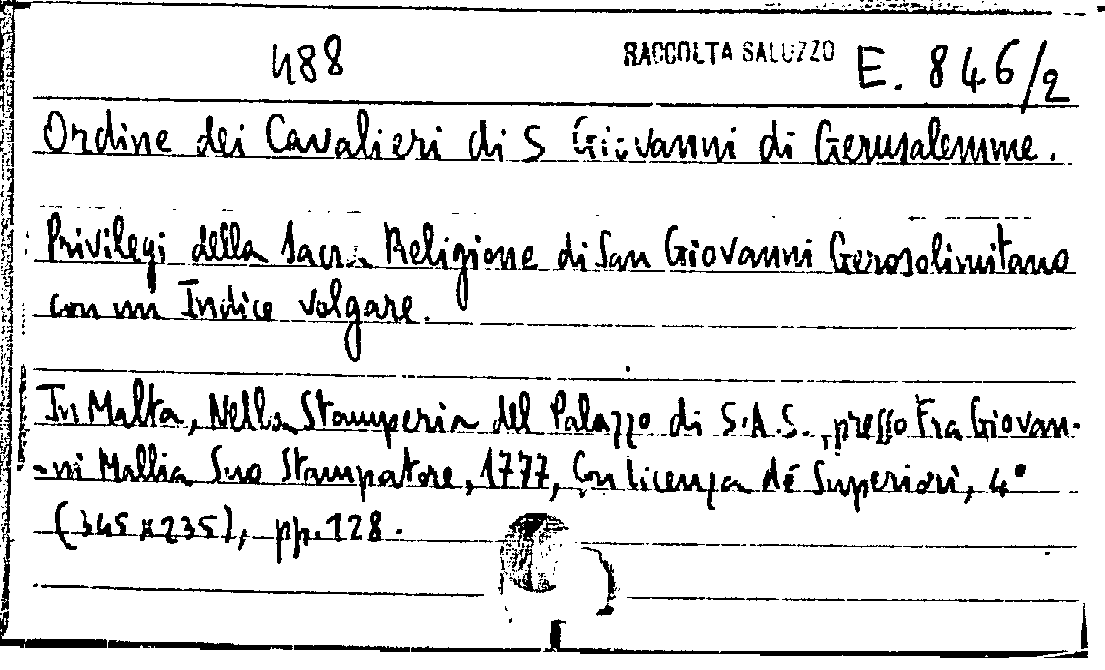 488 RACCOLTA SALUZZO E. 846/2
Ordine dei Cavalieri di S Giovanni di Gerusalemme.
Privilegi della Sacra Religione di San Giovanni Gerosolimitano
con un Indice volgare.
In Malta, Nella Stamperia del Palazzo di S.A.S., presso Fra Giovan-
-ni Mallia Suo Stampatore, 1777, Con licenza dé Superiori, 4°
(345x235), pp. 128.